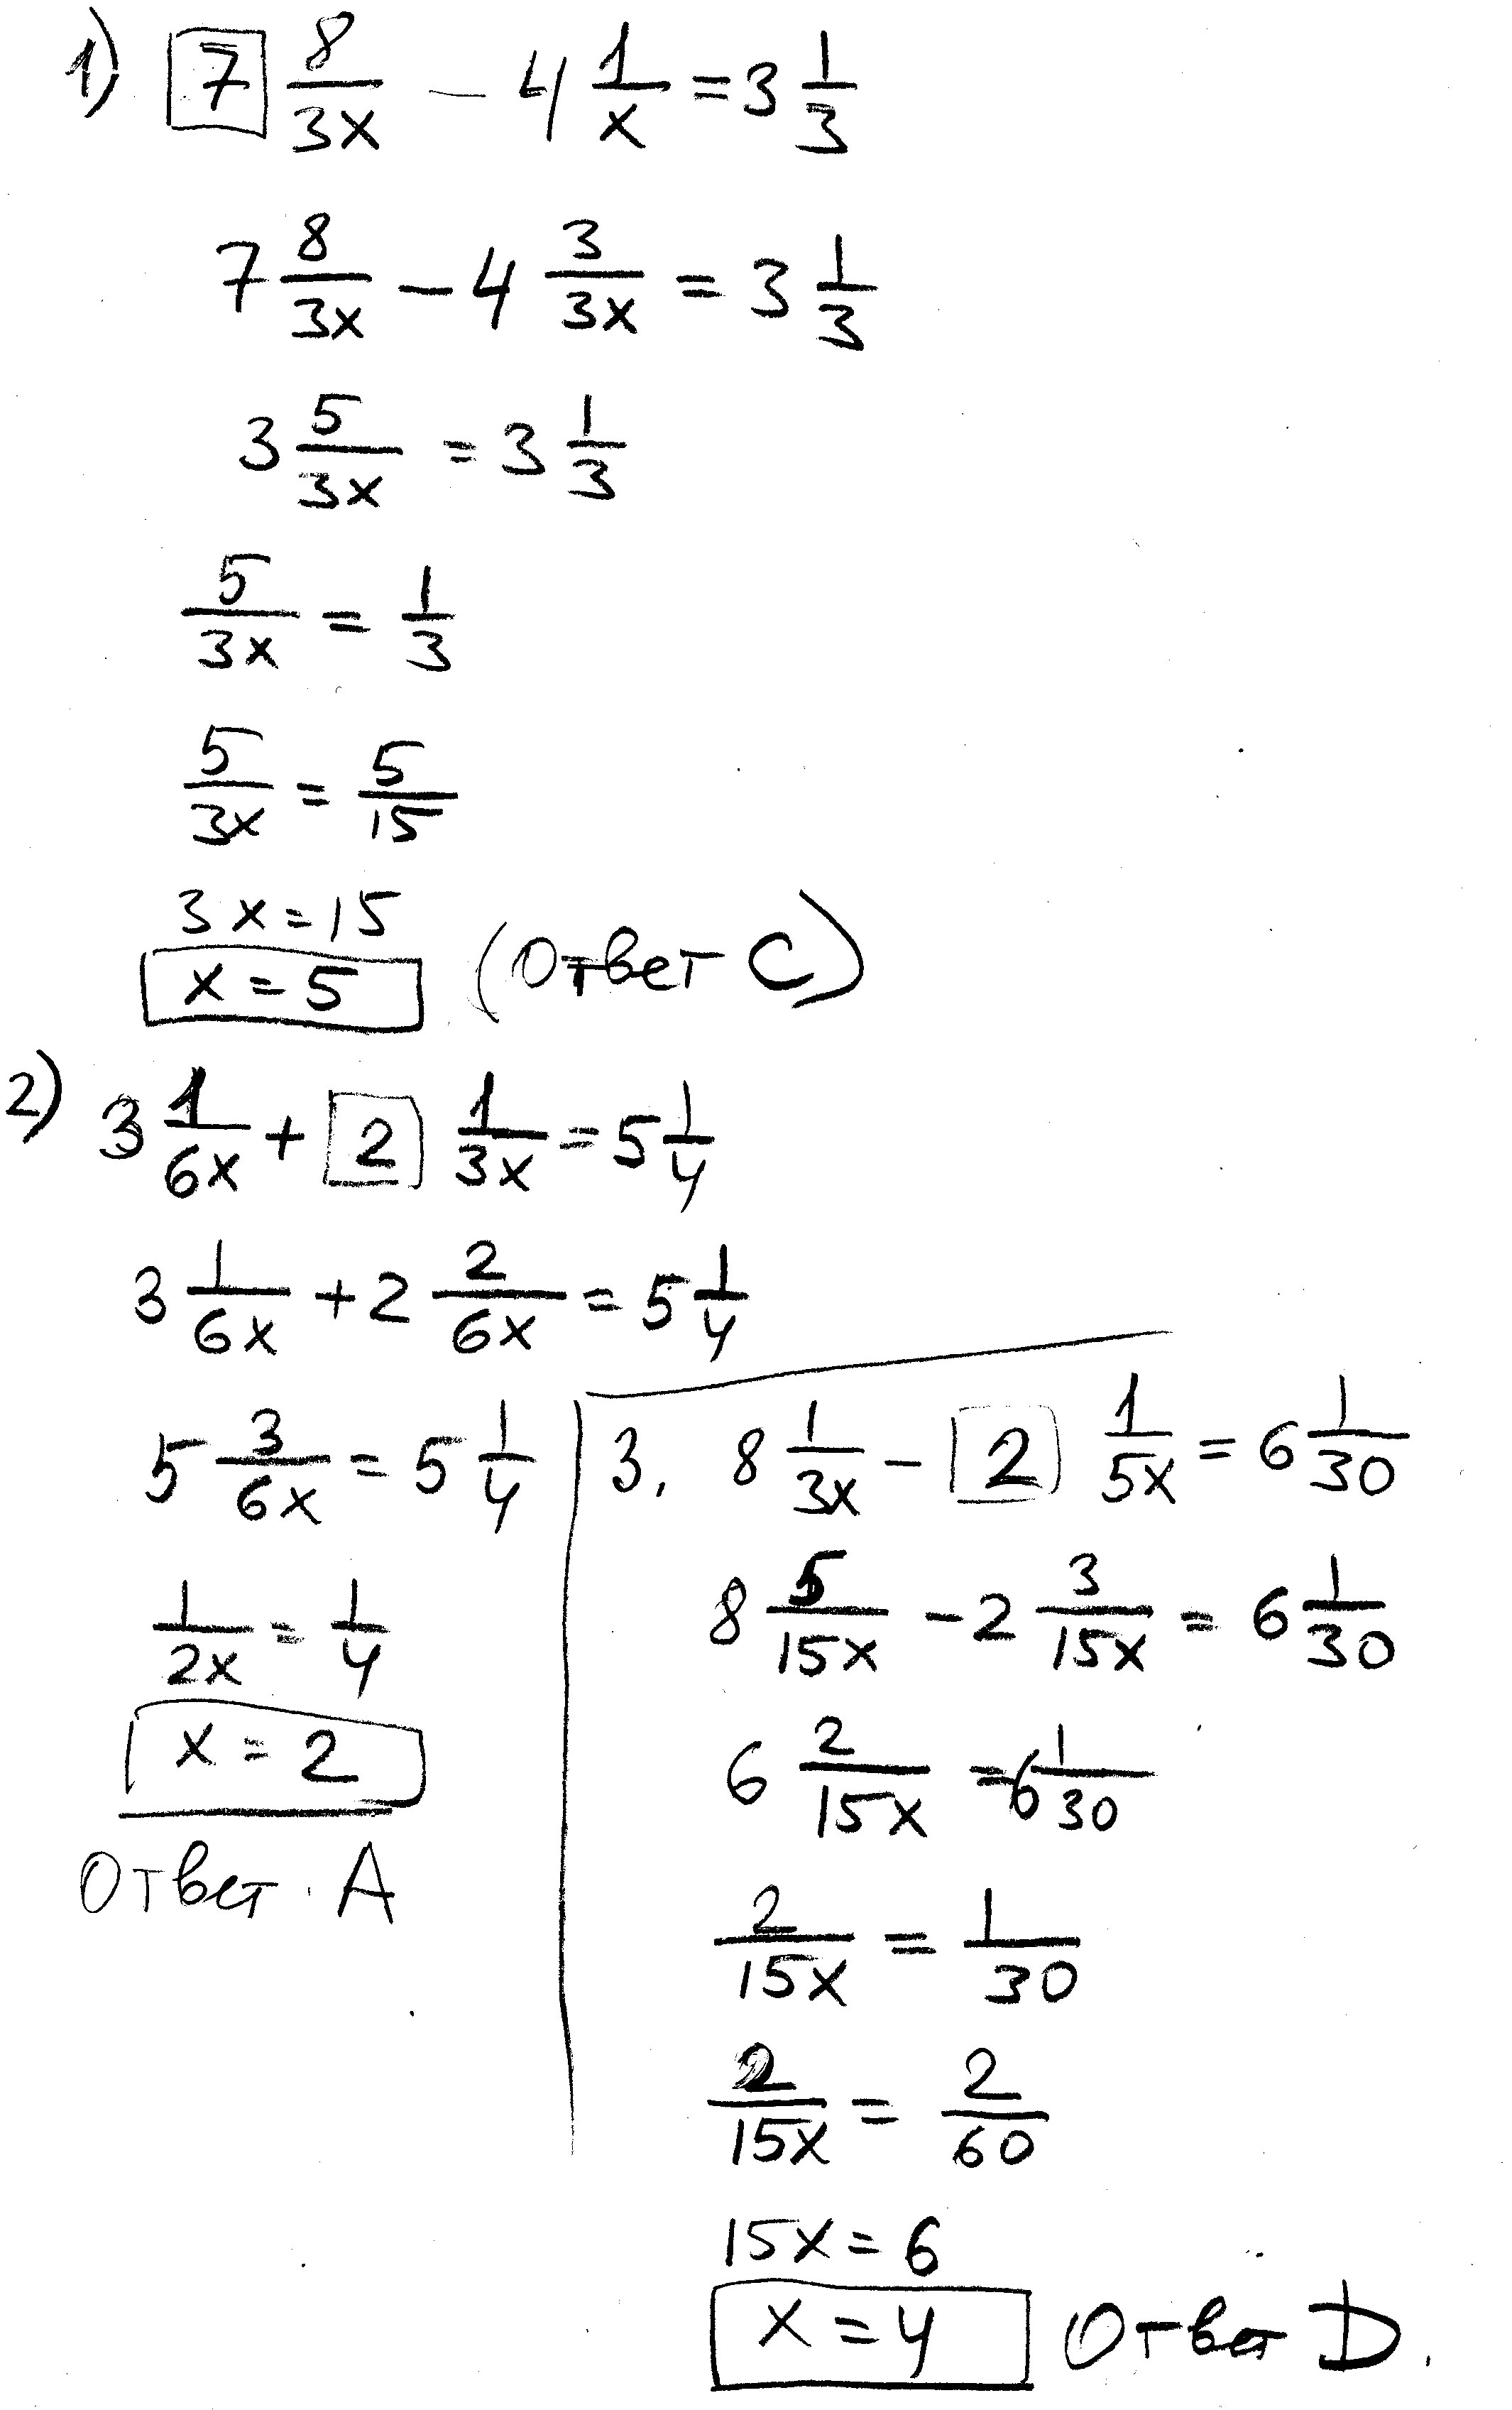 1) 7 8/3x - 4 1/x = 3 1/3
7 8/3x - 4 3/3x = 3 1/3
3 5/3x = 3 1/3
5/3x = 1/3
5/3x = 5/15
3x = 15
x = 5 (Ответ C)
2) 3 1/6x + 2 1/3x = 5 1/4
3 1/6x + 2 2/6x = 5 1/4
5 3/6x = 5 1/4
1/2x = 1/4
x = 2
Ответ. A
3. 8 1/3x - 2 1/5x = 6 1/30
8 5/15x - 2 3/15x = 6 1/30
6 2/15x = 6 1/30
2/15x = 1/30
2/15x = 2/60
15x = 6
x = 4 Ответ D.